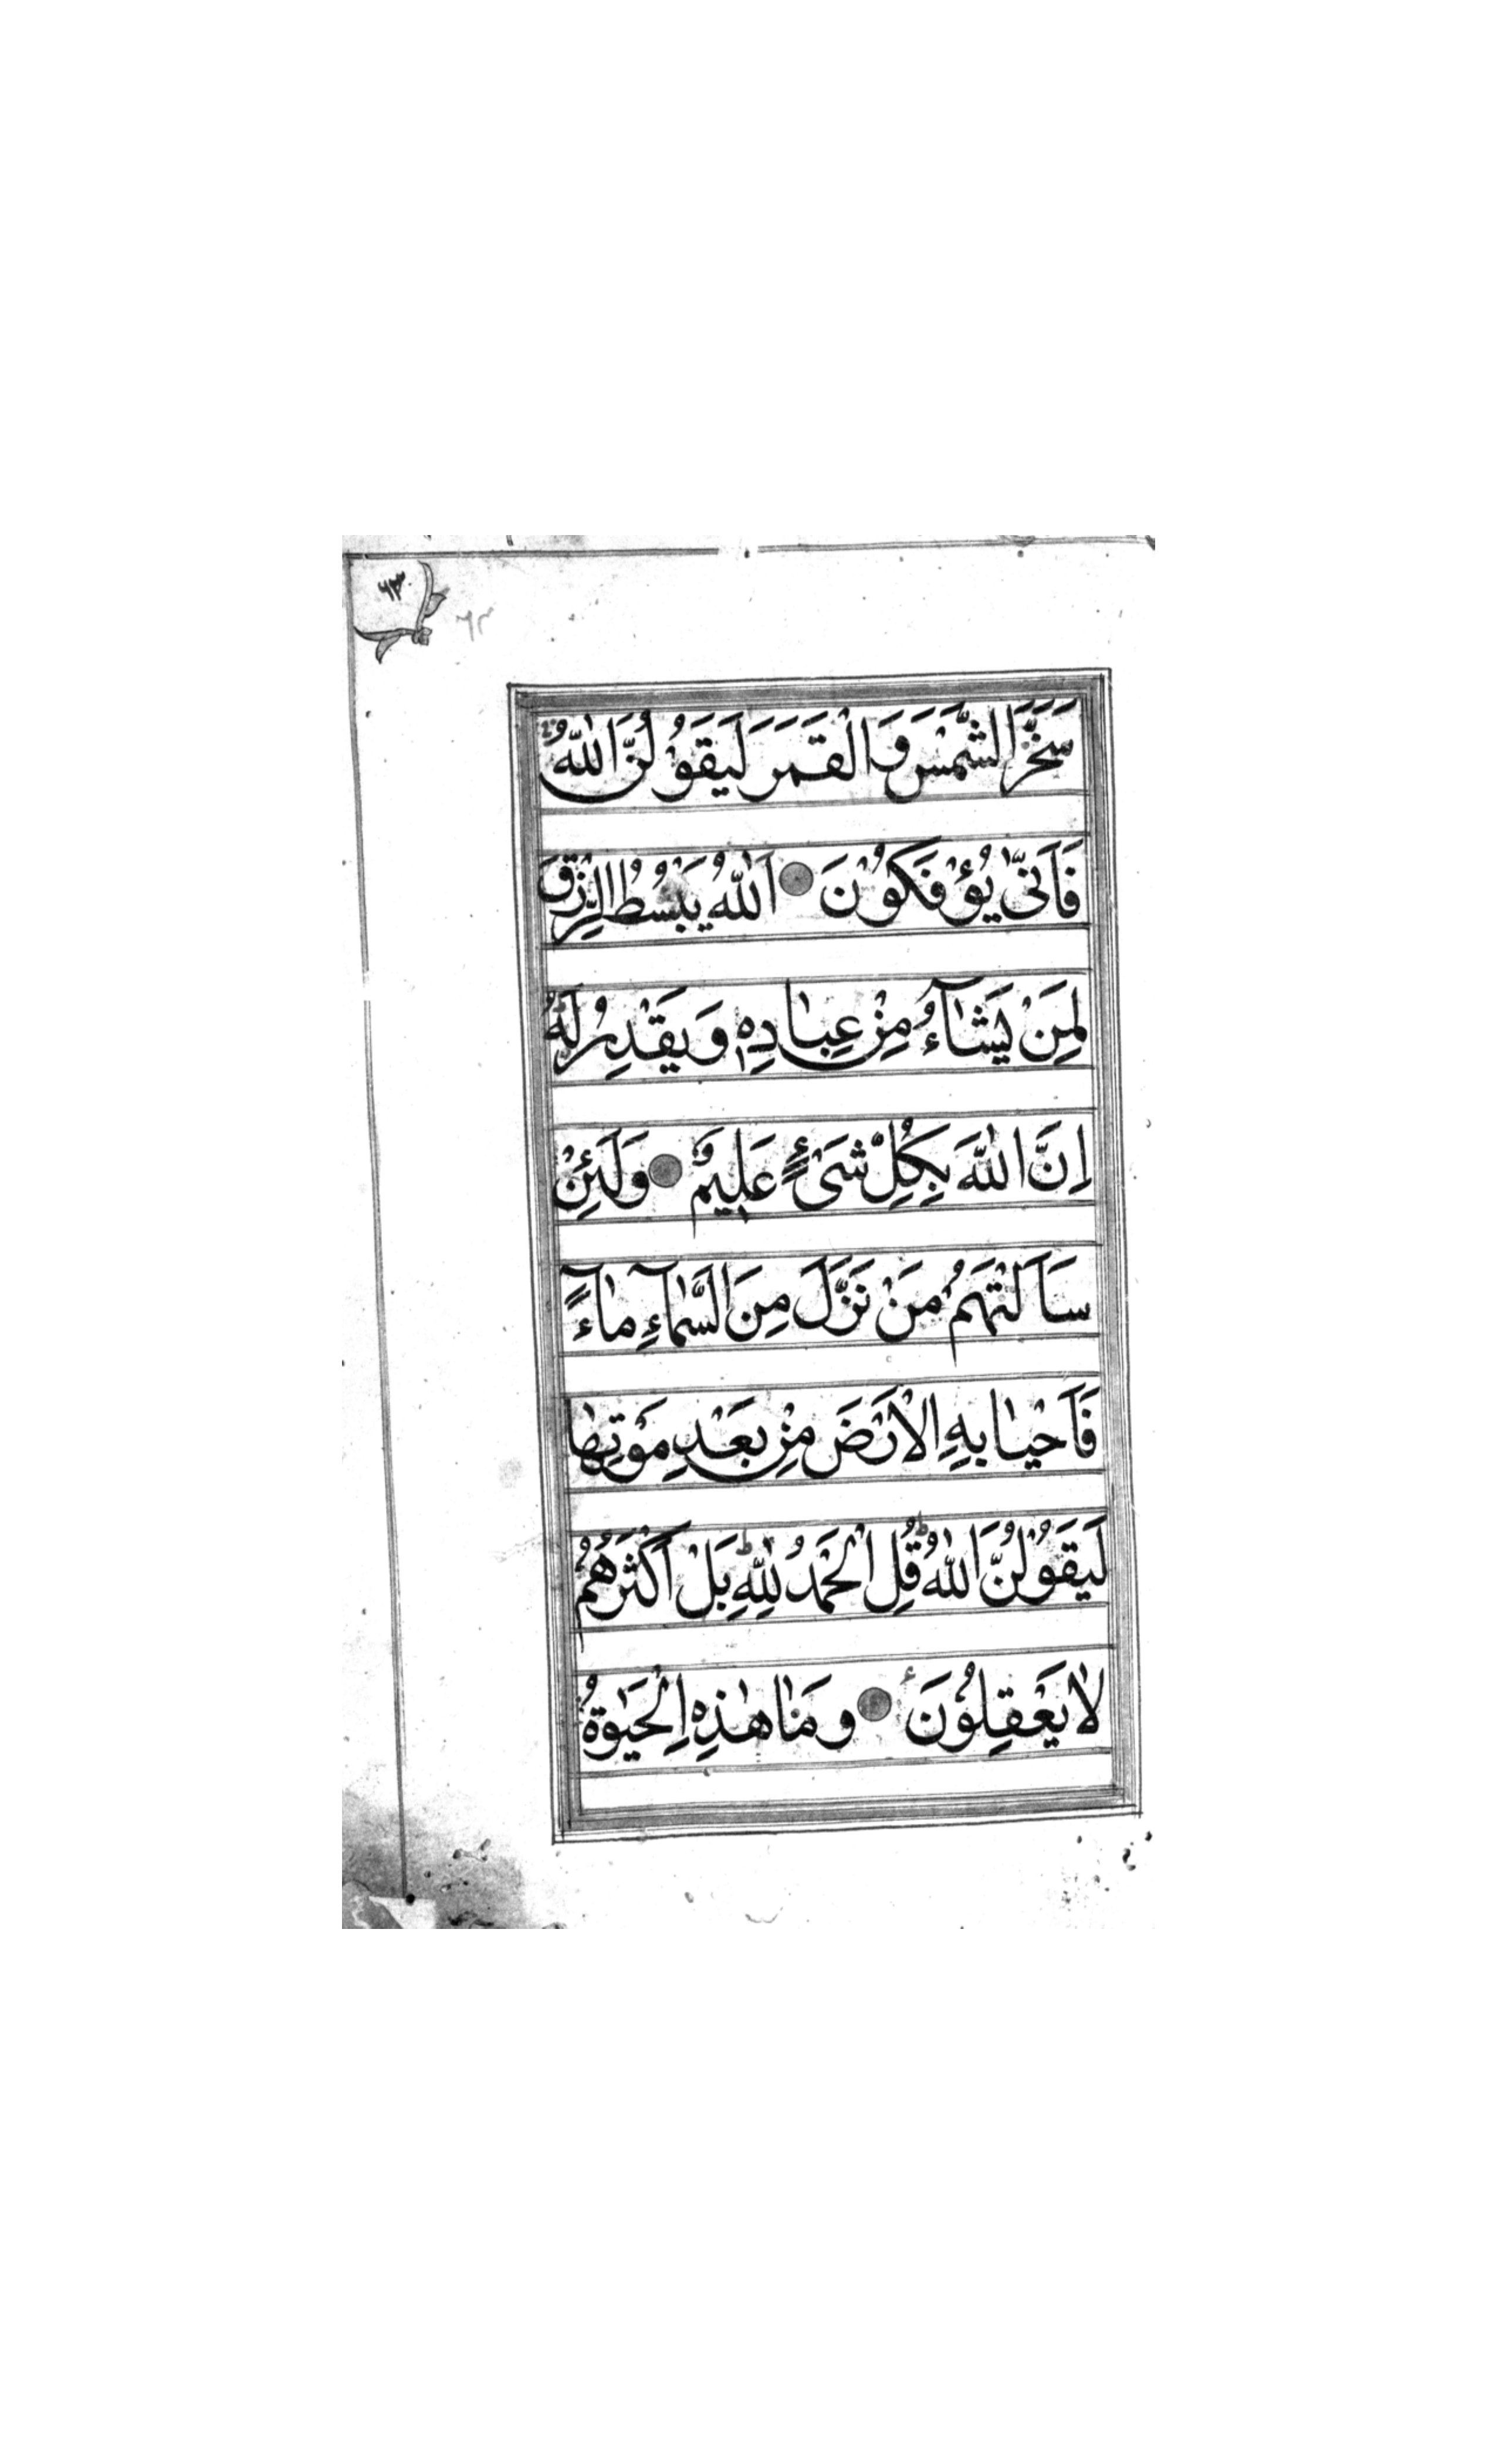 ٦٣
٦٣
سَخَّرَ الشَّمْسَ وَ الْقَمَرَ لَيَقُوْلُنَّ اللّٰهُ
فَاَنّٰى يُؤْفَكُوْنَ اَللّٰهُ يَبْسُطُ الرِّزْقَ
لِمَنْ يَشَآءُ مِنْ عِبَادِهٖ وَ يَقْدِرُ لَهٗ
اِنَّ اللّٰهَ بِكُلِّ شَیْءٍ عَلِيْمٌ وَلَئِنْ
سَاَلْتَهُمْ مَنْ نَزَّلَ مِنَ السَّمَآءِ مَآءً
فَاَحْيَا بِهِ الْاَرْضَ مِنْ بَعْدِ مَوْتِهَا
لَيَقُوْلُنَّ اللّٰهُ ؕ قُلِ الْحَمْدُ لِلّٰهِ ؕ بَلْ اَكْثَرُهُمْ
لَا يَعْقِلُوْنَ وَمَا هٰذِهِ الْحَيٰوةُ